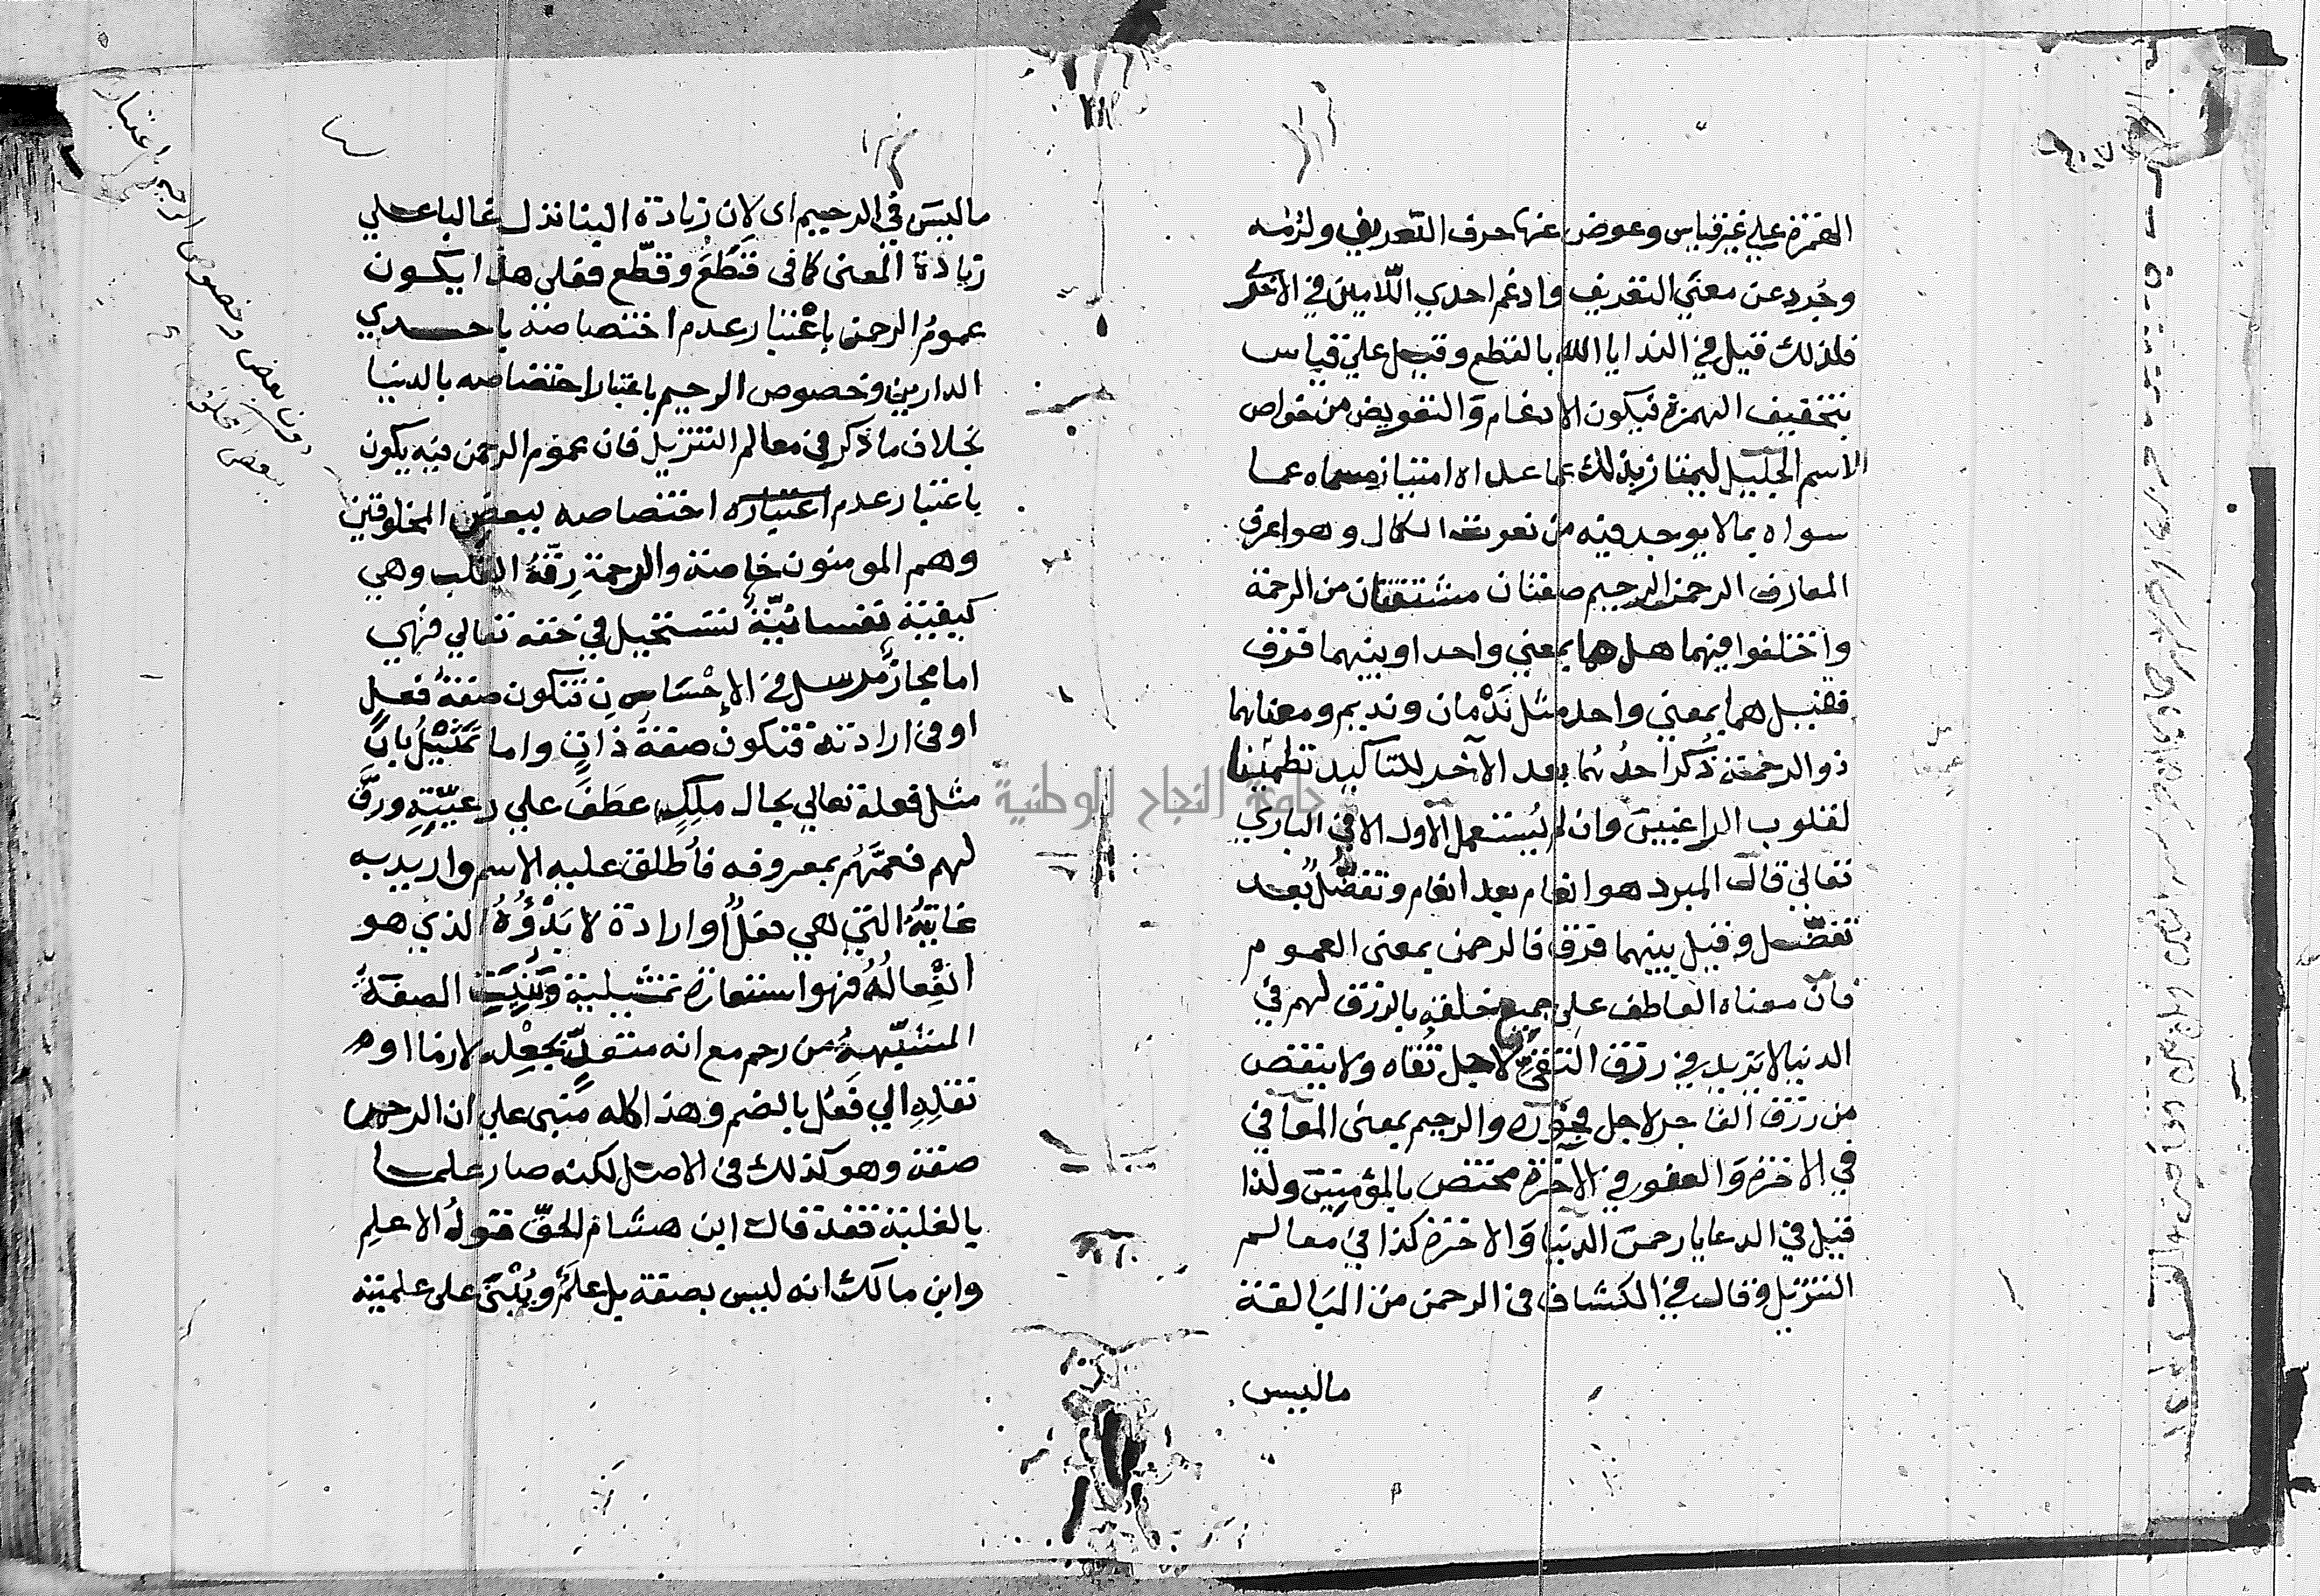 الهمزة علي غير قياس وعوض عنها حرف التعريف ولزمه
وجُرد عن معني التعريف وادغم احدي اللّامين في الاخري
فلذلك قيل في الندا يا الله بالقطع وقيل علي قياس
بتخفيف الهمزة فيكون الادغام والتعويض من خواص
الاسم الجليل ليمتاز بذلك عما عداه امتياز مسماه عما
سواه بما لا يوجد فيه من نعوت الكمال وهو اعرف
المعارف الرحمن الرحيم صفتان مشتقتان من الرحمة
واختلفوا فيهما هل هما بمعني واحد او بينهما فرق
فقيل هما بمعني واحد مثل نَدْمان ونديم ومعناهما
ذو الرحمة ذُكر احدُهُما بعد الآخر للتاكيد تطمينا
لقلوب الراغبين وان لم يُستعمل الاول الا في الباري
تعالي قال المبرد هو انعام بعد انعام وتفضُّلٌ بعد
تفضّل وقيل بينهما فرق فالرحمن بمعنى العموم
فان معناه العاطف على جميع خلقه بالرزق لهم في
الدنيا لا يزيد في رزق التقي لاجل تُقاه ولا ينقص
من رزق الفاجر لاجل فجوره والرحيم بمعنى المعافي
في الاخرة والعفو في الآخرة مختص بالمؤمنين ولذا
قيل في الدعا يا رحمن الدنيا والاخرة كذا في معالم
التنزيل وقال في الكشاف في الرحمن من المبالغة
ما ليس
٤
ما ليسَ في الرحيم اى لان زيادة البنا تدل غالبا علي
زيادة المعنى كما فى قَطَعَ وقطّع فعلي هذا يكون
عمومُ الرحمن باعْتبار عدم اختصاصه باحدي
الدارين وخصوص الرحيم باعتبار اختصاصه بالدنيا
بخلاف ما ذكر في معالم التنزيل فان عموم الرحمن فيه يكون
باعتبار عدم اعتباره اختصاصه ببعض المخلوقين
وهم المومنون خاصة والرحمة رِقّةُ القلب وهي
كيفية نفسانيّةٌ تستحيل في حقه تعالي فهي
اما مجازٌ مرسل في الإحْسَانِ فتكون صفةُ فعلٍ
او في ارادته فتكون صفةَ ذاتٍ واما تمثيلٌ بان
مثل فعله تعالي بحال ملِكٍ عطَفَ علي رعيّتِهِ ورقَّ
لهم فعمَّهُم بمعروفه فأطلق عليه الاسم واريد به
غايتُهُ التي هي فعلٌ او ارادة لا بَدْؤُهُ الذي هو
انفِعالُهُ فهو استعارة تمثيلية وبُنِيَتِ الصفةُ
المشبّهةُ من رحم مع انه متعدٍّ بجعْلِهِ لازما او
نقلِهِ الي فَعُل بالضم وهذا كله مبنى علي ان الرحمن
صفة وهو كذلك في الاصل لكنه صار علما
بالغلبة فقد قال ابن هشام الحقّ قولُ الاعلم
وابن مالك انه ليس بصفة بل عَلَمٌ ويُبْنَى على علميته
وخصوص الرحيم باعتبار
جامعة النجاح الوطنية